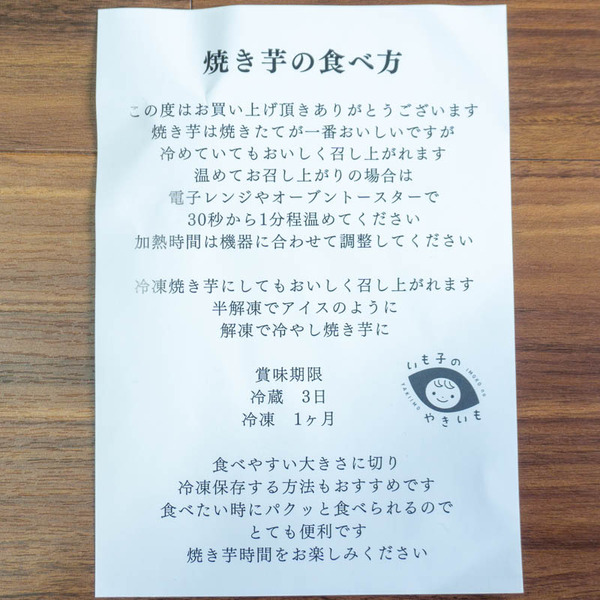 焼き芋の食べ方
この度はお買い上げ頂きありがとうございます
焼き芋は焼きたてが一番おいしいですが
冷めていてもおいしく召し上がれます
温めてお召し上がりの場合は
電子レンジやオーブントースターで
30秒から1分程温めてください
加熱時間は機器に合わせて調整してください
冷凍焼き芋にしてもおいしく召し上がれます
半解凍でアイスのように
解凍で冷やし焼き芋に
賞味期限
冷蔵 3日
冷凍 1ヶ月
いも子の
IMOKO no
YAKIIMO
やきいも
食べやすい大きさに切り
冷凍保存する方法もおすすめです
食べたい時にパクッと食べられるので
とても便利です
焼き芋時間をお楽しみください